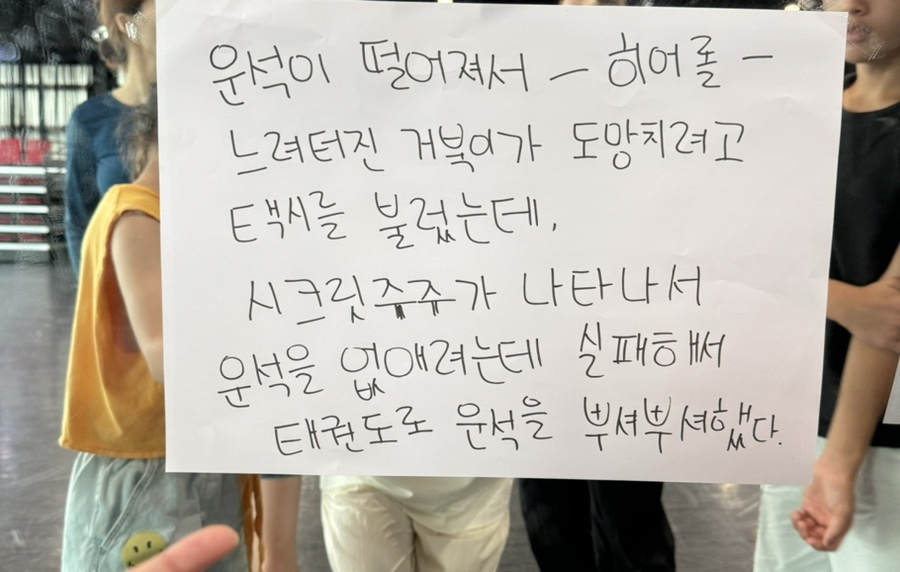 운석이 떨어져서 - 히어롤 -
느려터진 거북이가 도망치려고
택시를 불렀는데,
시크릿쥬쥬가 나타나서
운석을 없애려는데 실패해서
태권도로 운석을 부셔부셔했다.